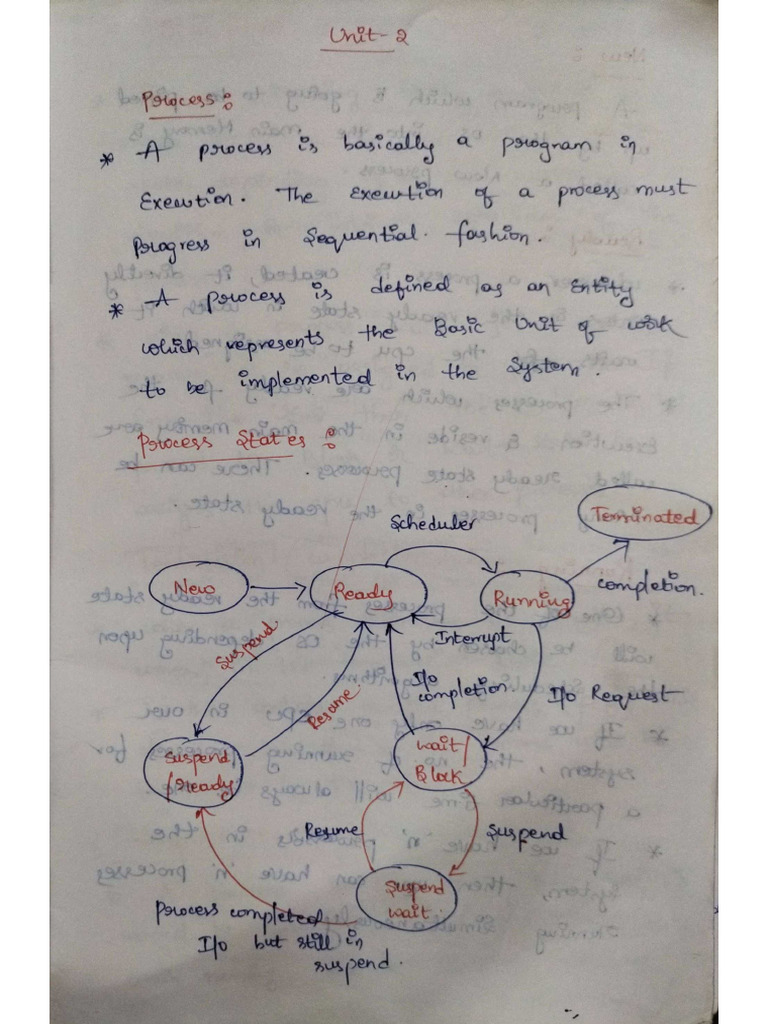 Unit-2
Process:
* A process is basically a program in
Execution. The Execution of a process must
Progress in Sequential fashion.
* A process is defined as an Entity
which represents the Basic Unit of work
to be implemented in the System.
Process States:
Scheduler
Terminated
New
Ready
Running
completion.
Interrupt
Suspend
Resume
I/o
completion.
I/o Request
Suspend
/Ready
Wait/
Block
Resume
Suspend
Suspend
wait
Process completed
I/o but still in
suspend.